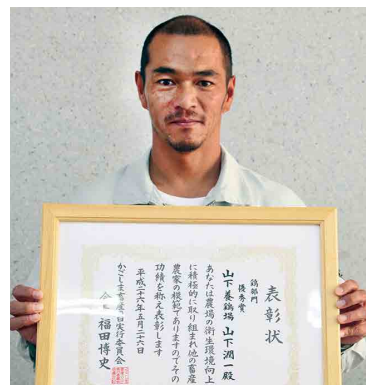 表彰状
鶏部門
優秀賞
山下養鶏場 山下潤一殿
あなたは農場の衛生環境向上
に積極的に取り組まれ他の畜産
農家の模範でありますのでその
功績を称え表彰します
平成二十六年五月二十六日
かごしま畜産の日実行委員会
会長 福田博史